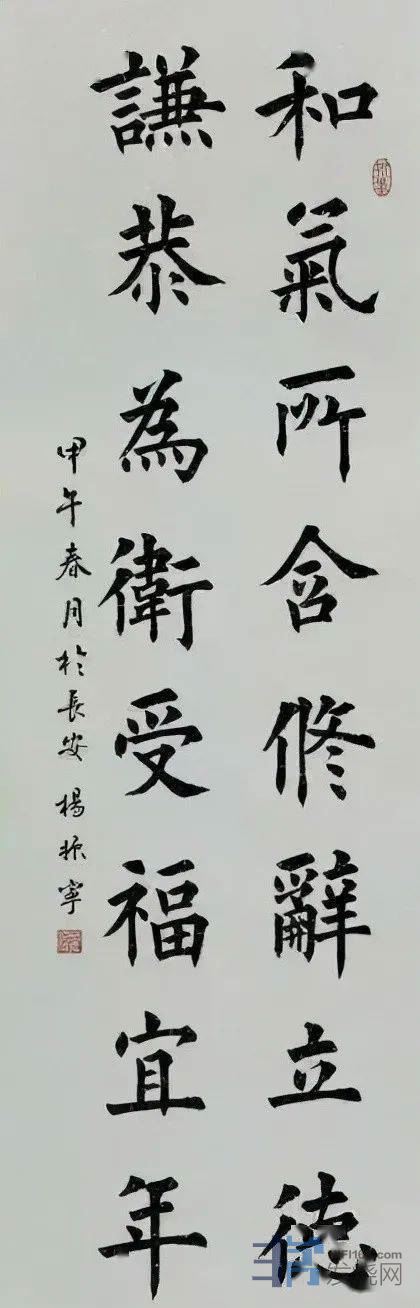 和氣所含修辭立德
謙恭為衛受福宜年
甲午春月於長安 楊振寧
发烧网